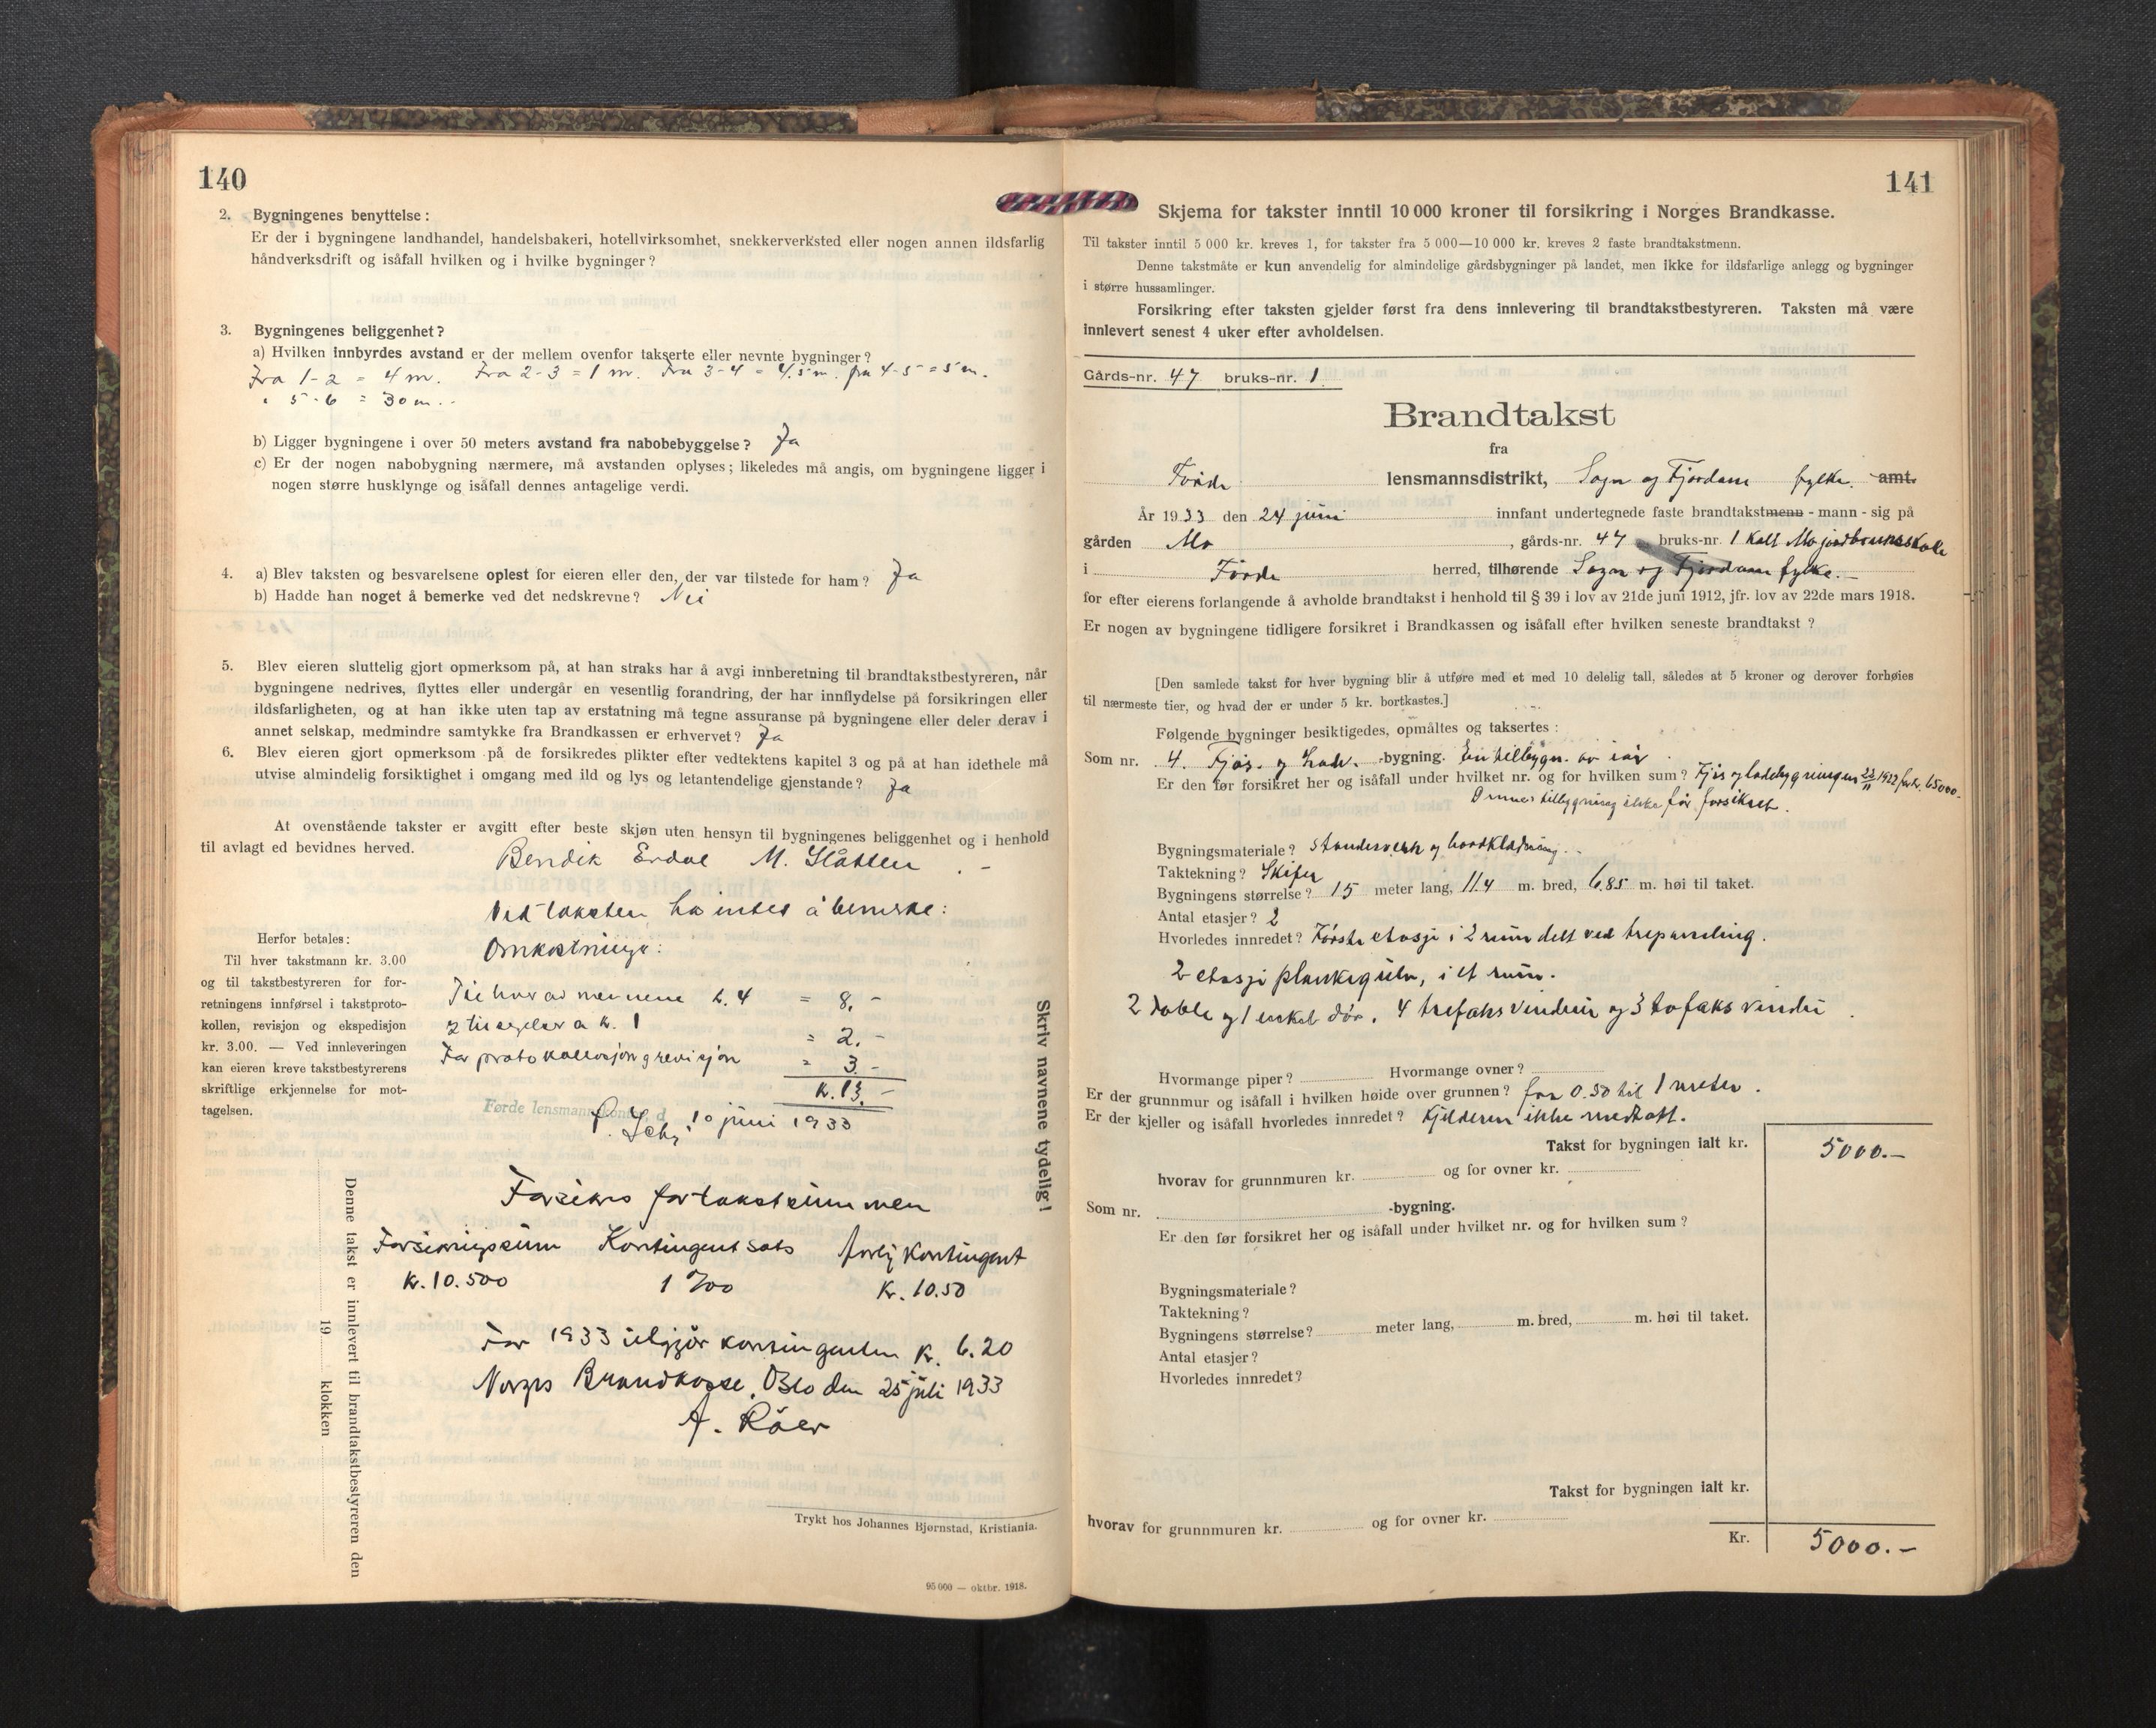 140
2. Bygningenes benyttelse:
Er der i bygningene landhandel, handelsbakeri, hotellvirksomhet, snekkerverksted eller nogen annen ildsfarlig
håndverksdrift og isåfall hvilken og i hvilke bygninger?
3. Bygningenes beliggenhet?
a) Hvilken innbyrdes avstand er der mellem ovenfor takserte eller nevnte bygninger?
Fra 1-2 = 4 m. Fra 2-3 = 1 m. Fra 3-4 = 4.5 m. fra 4-5 = 5 m.
" 5-6 = 30 m.
b) Ligger bygningene i over 50 meters avstand fra nabobebyggelse? Ja
c) Er der nogen nabobygning nærmere, må avstanden oplyses; likeledes må angis, om bygningene ligger i
nogen større husklynge og isåfall dennes antagelige verdi.
4. a) Blev taksten og besvarelsene oplest for eieren eller den, der var tilstede for ham? Ja
b) Hadde han noget å bemerke ved det nedskrevne? Nei
5. Blev eieren sluttelig gjort opmerksom på, at han straks har å avgi innberetning til brandtakstbestyreren, når
bygningene nedrives, flyttes eller undergår en vesentlig forandring, der har innflydelse på forsikringen eller
ildsfarligheten, og at han ikke uten tap av erstatning må tegne assuranse på bygningene eller deler derav i
annet selskap, medmindre samtykke fra Brandkassen er erhvervet? Ja
6. Blev eieren gjort opmerksom på de forsikredes plikter efter vedtektens kapitel 3 og på at han idethele må
utvise almindelig forsiktighet i omgang med ild og lys og letantendelige gjenstande? Ja
At ovenstående takster er avgitt efter beste skjøn uten hensyn til bygningenes beliggenhet og i henhold
til avlagt ed bevidnes herved.
Bendik Erdal M. Slåtten
Ved taksten ha intet å bemerke:
Omkostninger:
Herfor betales:
Til hver takstmann kr. 3.00
og til takstbestyreren for for-
retningens innførsel i takstproto-
kollen, revisjon og ekspedisjon
kr. 3.00. — Ved innleveringen
kan eieren kreve takstbestyrerens
skriftlige erkjennelse for mot-
tagelsen.
Til hver av mennene k. 4 = 8.-
2 tilsegelser a kr. 1 = 2.-
For protokollasjon og revisjon = 3.-
kr. 13.-
Førde lensmannskontor, d. 10 juni 1933
Forsikres for takstsummen
Forsikringssum Kontingentsats Årlig kontingent
Kr. 10.500 1 ‰ Kr. 10.50
For 1933 utgjør kontingenten Kr. 6.20
Norges Brandkasse, Oslo den 25 juli 1933
A. Röer
Skriv navnene tydelig!
Denne takst er innlevert til brandtakstbestyreren den
19 klokken
Trykt hos Johannes Bjørnstad, Kristiania.
95 000 — oktbr. 1918.
141
Skjema for takster inntil 10 000 kroner til forsikring i Norges Brandkasse.
Til takster inntil 5 000 kr. kreves 1, for takster fra 5 000—10 000 kr. kreves 2 faste brandtakstmenn.
Denne takstmåte er kun anvendelig for almindelige gårdsbygninger på landet, men ikke for ildsfarlige anlegg og bygninger
i større hussamlinger.
Forsikring efter taksten gjelder først fra dens innlevering til brandtakstbestyreren. Taksten må være
innlevert senest 4 uker efter avholdelsen.
Gårds-nr. 47 bruks-nr. 1
Brandtakst
fra
Förde lensmannsdistrikt, Sogn og Fjordane fylke. amt.
År 1933 den 24 juni innfant undertegnede faste brandtakstmenn - mann - sig på
gården Mo, gårds-nr. 47 bruks-nr. 1 kalt Mo jordbruksskole
i Förde herred, tilhørende Sogn og Fjordane fylke.
for efter eierens forlangende å avholde brandtakst i henhold til § 39 i lov av 21de juni 1912, jfr. lov av 22de mars 1918.
Er nogen av bygningene tidligere forsikret i Brandkassen og isåfall efter hvilken seneste brandtakst?
[Den samlede takst for hver bygning blir å utføre med et med 10 delelig tall, således at 5 kroner og derover forhøies
til nærmeste tier, og hvad der er under 5 kr. bortkastes.]
Følgende bygninger besiktigedes, opmåltes og taksertes:
Som nr. 4. Fjøs. og Lade. -bygning. En tilbygn. av iår
Er den før forsikret her og isåfall under hvilket nr. og for hvilken sum? Fjøs og ladebygningen 23/11 1922 for kr. 65000.-
Denne tilbygning ikke før forsikret.
Bygningsmateriale? Standerverk og bordklædning.
Taktekning? Skifer
Bygningens størrelse? 15 meter lang, 11.4 m. bred, 6.85 m. høi til taket.
Antal etasjer? 2
Hvorledes innredet? Første etasje i 2 rum delt ved trepaneling.
2 etasje plankegulv, i et rum.
2 doble og 1 enkel dør. 4 trefaks vinduer og 3 tofaks vinduer
Hvormange piper? Hvormange ovner?
Er der grunnmur og isåfall i hvilken høide over grunnen? fra 0.50 til 1 meter.
Er der kjeller og isåfall hvorledes innredet? Kjelderen ikke medtatt.
Takst for bygningen ialt kr. 5000.-
hvorav for grunnmuren kr. og for ovner kr.
Som nr. -bygning.
Er den før forsikret her og isåfall under hvilket nr. og for hvilken sum?
Bygningsmateriale?
Taktekning?
Bygningens størrelse? meter lang, m. bred, m. høi til taket.
Antal etasjer?
Hvorledes innredet?
Takst for bygningen ialt kr.
hvorav for grunnmuren kr. og for ovner kr.
Kr. 5000.-